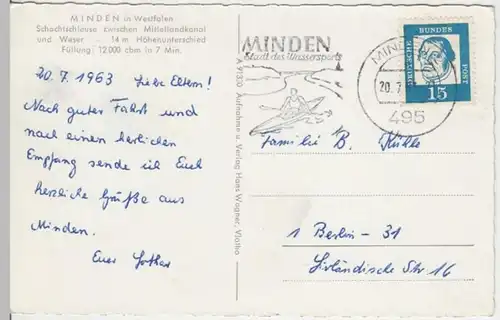 MINDEN in Westfalen
Schachtschleuse zwischen Mittellandkanal
und Weser - 14 m Höhenunterschied
Füllung: 12000 cbm in 7 Min.
20.7.1963 Liebe Eltern!
Nach guter Fahrt und
nach einen herlichen
Empfang sende ich Euch
herzliche Grüße aus
Minden.
Euer Lothar
Aufnahme u. Verlag Hans Wagner, Vlotho
MINDEN
Stadt des Wassersports
MINDEN
20.7.
495
DEUTSCHE BUNDESPOST
15
Familie B. Kühle
1 Berlin - 31
Livländische Str 16